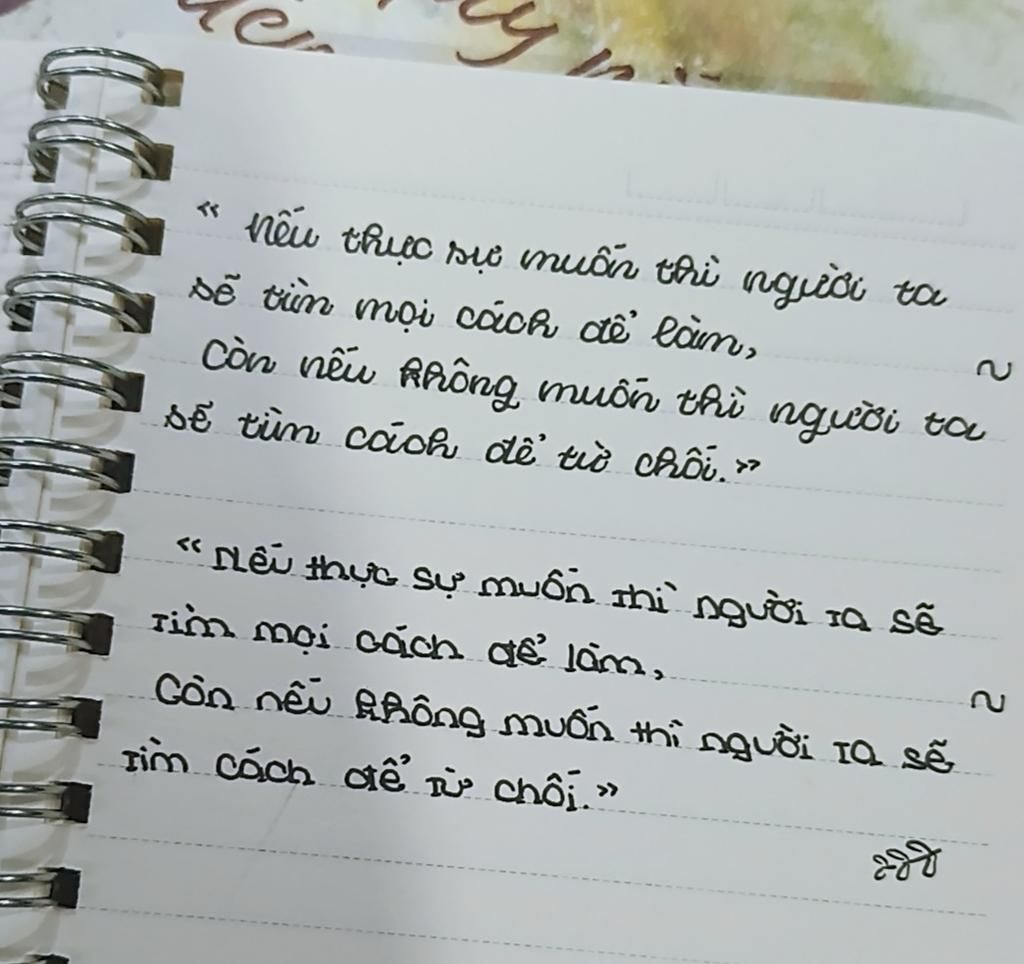 “ Nếu thực sự muốn thì người ta
sẽ tìm mọi cách để làm,
Còn nếu không muốn thì người ta
sẽ tìm cách để từ chối.”
“ Nếu thực sự muốn thì người ta sẽ
tìm mọi cách để làm,
Còn nếu không muốn thì người ta sẽ
tìm cách để từ chối.”